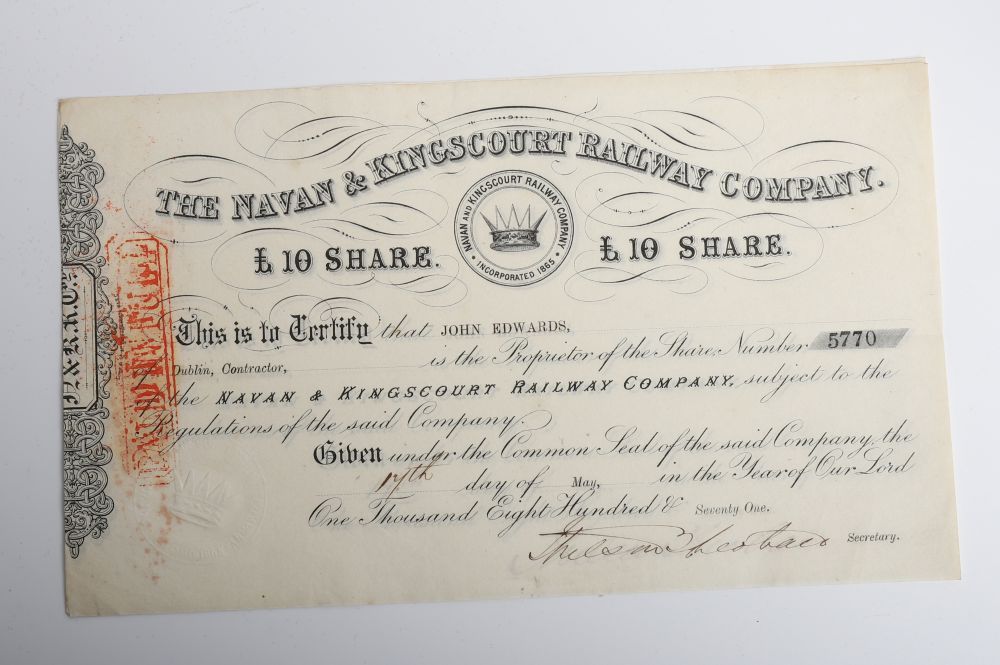 THE NAVAN & KINGSCOURT RAILWAY COMPANY.
£10 SHARE.
NAVAN AND KINGSCOURT RAILWAY COMPANY
INCORPORATED 1865
£10 SHARE.
N. & K. R. Co.
PAID IN FULL
This is to Certify that JOHN EDWARDS,
Dublin, Contractor, is the Proprietor of the Share, Number 5770
of the NAVAN & KINGSCOURT RAILWAY COMPANY, subject to the
Regulations of the said Company.
Given under the Common Seal of the said Company, the
17th day of May, in the Year of Our Lord
One Thousand Eight Hundred & Seventy One.
Secretary.